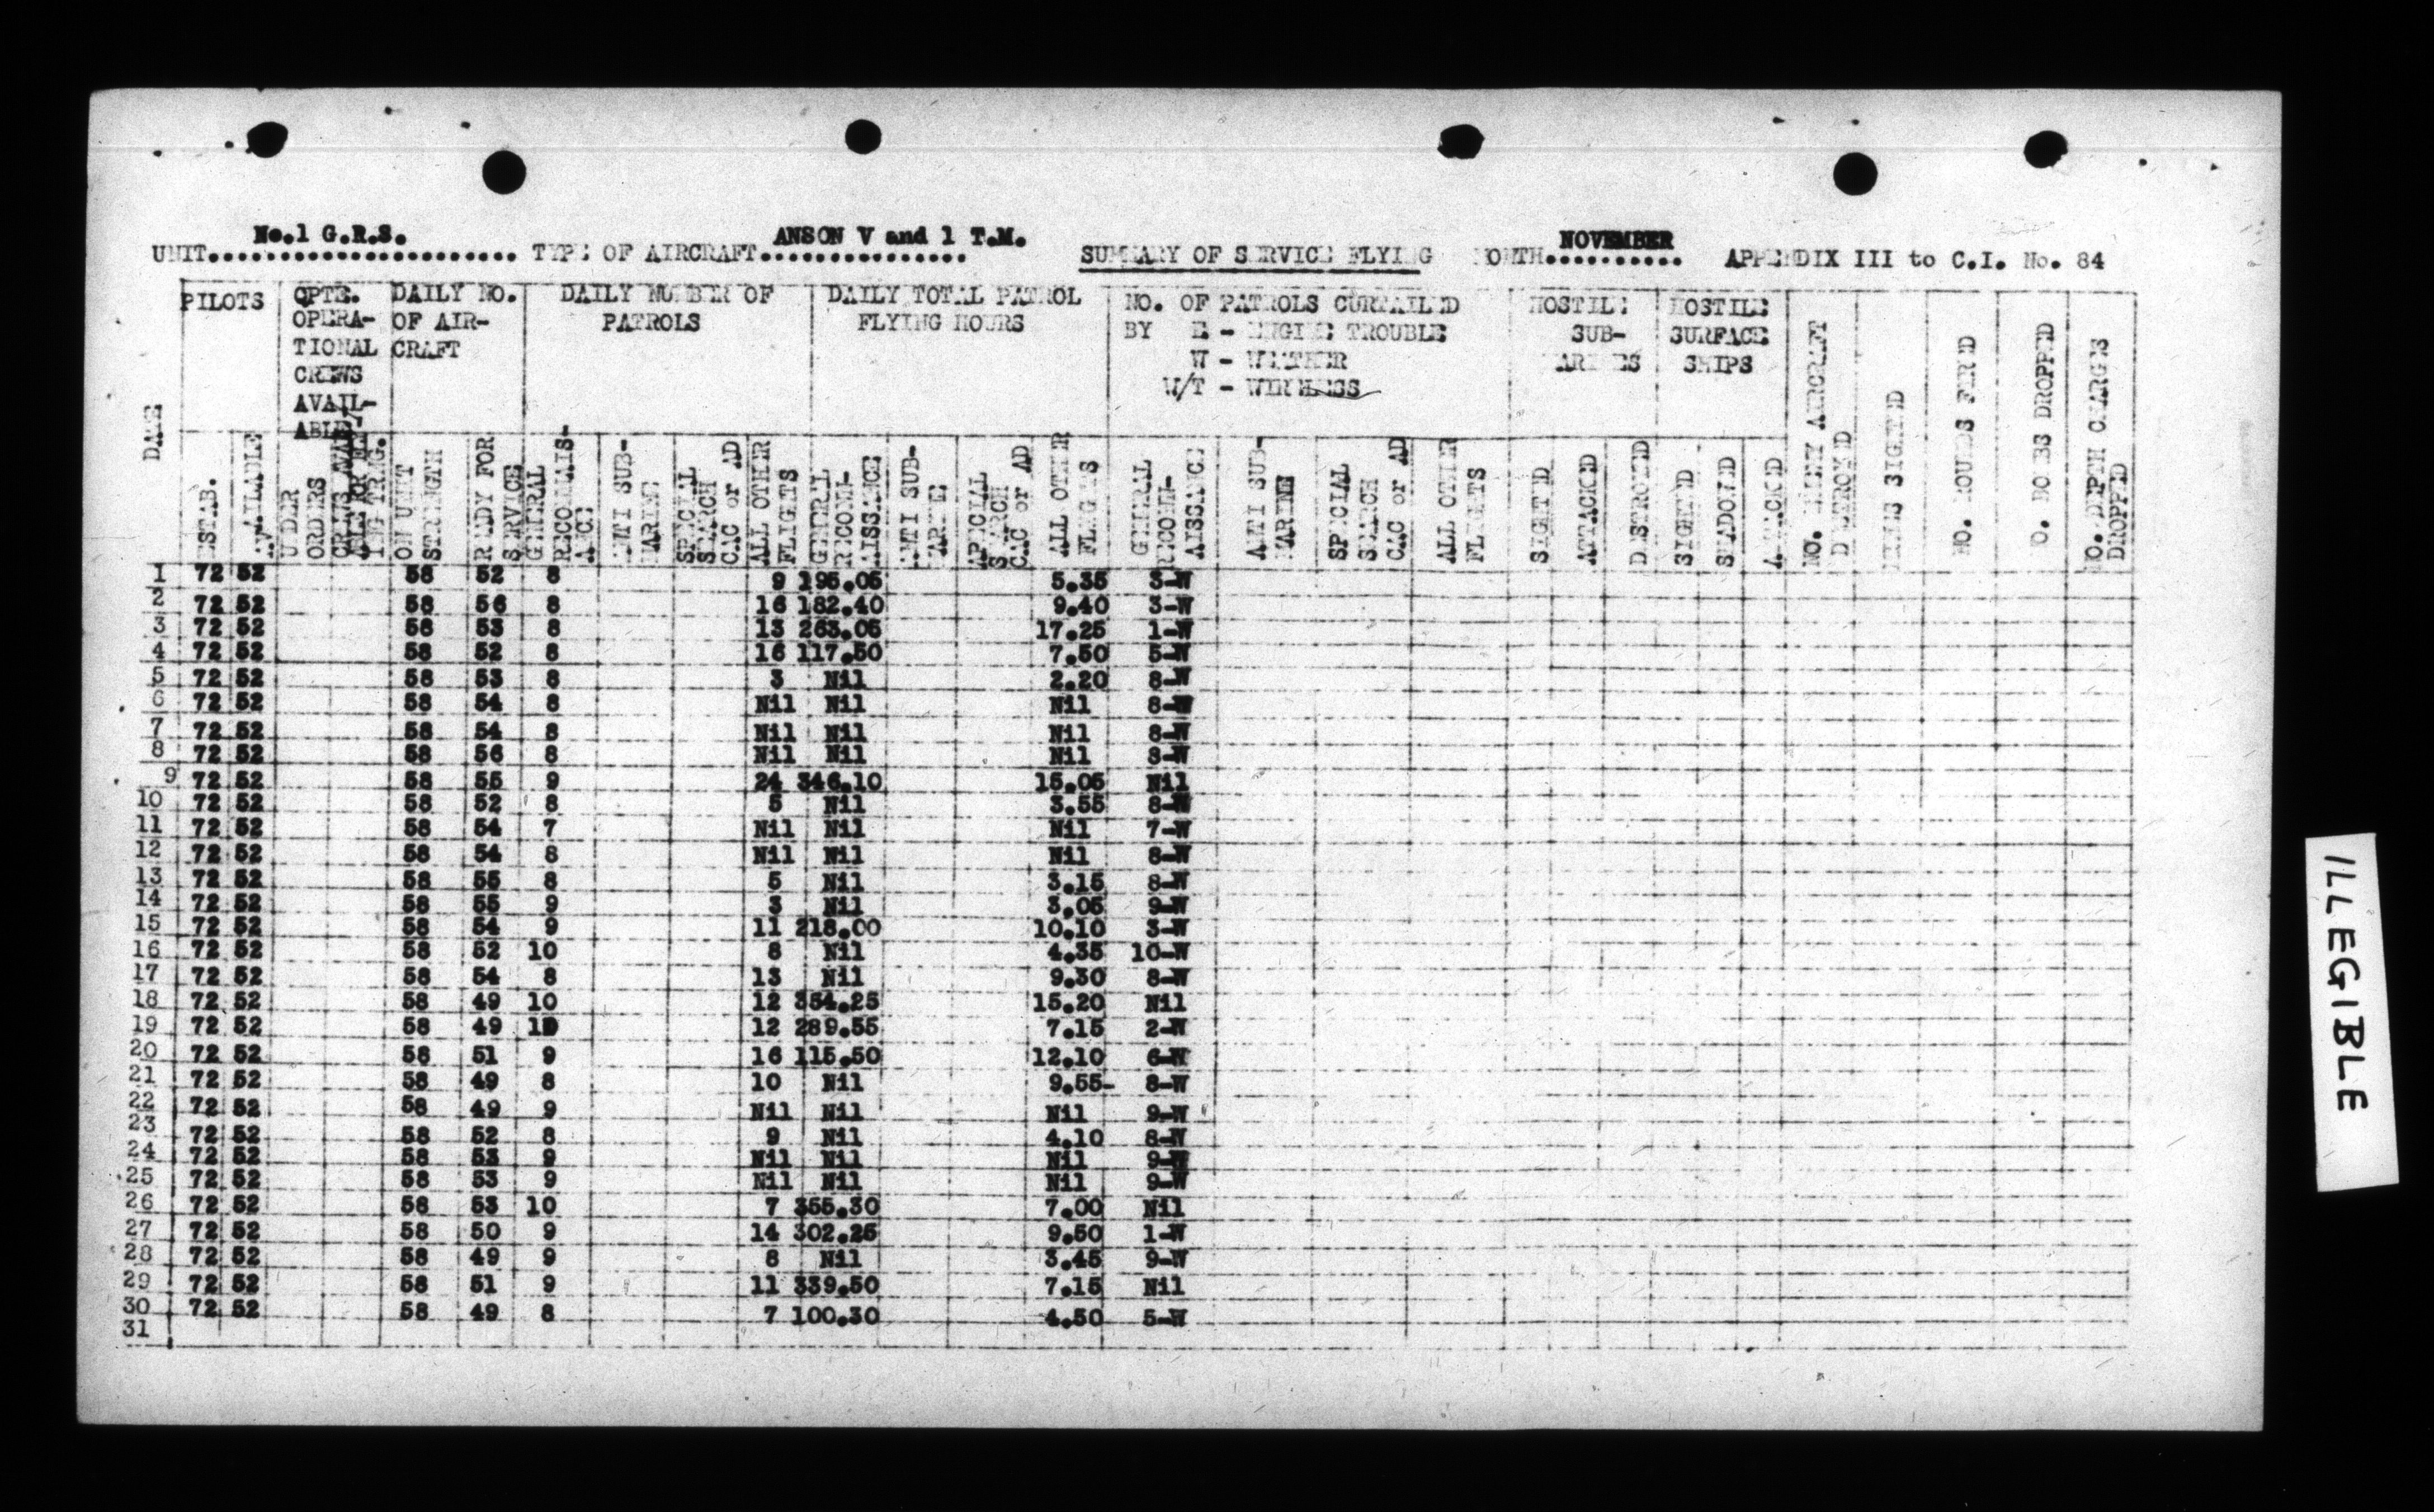 No.1 G.R.S. ANSON V and 1 T.M. NOVEMBER
UNIT....................... TYPE OF AIRCRAFT................ SUMMARY OF SERVICE FLYING MONTH.......... APPENDIX III to C.I. No. 84
DATE
PILOTS
ESTAB.
AVAILABLE
OPTE.
OPERA-
TIONAL
CREWS
AVAIL-
ABLE
UNDER
ORDERS
DAILY NO.
OF AIR-
CRAFT
ON UNIT
STRENGTH
READY FOR
SERVICE
DAILY NUMBER OF
PATROLS
GENERAL
RECONNAIS-
ANCE
ANTI SUB-
MARINE
SPECIAL
SEARCH
CAC or AD
ALL OTHER
FLIGHTS
DAILY TOTAL PATROL
FLYING HOURS
GENERAL
RECONN-
AISSANCE
ANTI SUB-
MARINE
SPECIAL
SEARCH
CAC or AD
ALL OTHER
FLIGHTS
NO. OF PATROLS CURTAILED
BY E - ENGINE TROUBLE
W - WEATHER
W/T - WIRELESS
GENERAL
RECONN-
AISSANCE
ANTI SUB-
MARINE
SPECIAL
SEARCH
CAC or AD
ALL OTHER
FLIGHTS
HOSTILE
SUB-
MARINES
SIGHTED
ATTACKED
DESTROYED
HOSTILE
SURFACE
SHIPS
SIGHTED
SHADOWED
ATTACKED
NO. ENEMY AIRCRAFT
DESTROYED
MINES SIGHTED
NO. ROUNDS FIRED
NO. BOMBS DROPPED
NO. DEPTH CHARGES
DROPPED
1 72 52 58 52 8 9 195.05 5.35 3-W
2 72 52 58 56 8 16 182.40 9.40 3-W
3 72 52 58 53 8 13 263.05 17.25 1-W
4 72 52 58 52 8 16 117.50 7.50 5-W
5 72 52 58 53 8 3 Nil 2.20 8-W
6 72 52 58 54 8 Nil Nil Nil 8-W
7 72 52 58 54 8 Nil Nil Nil 8-W
8 72 52 58 56 8 Nil Nil Nil 8-W
9 72 52 58 55 9 24 346.10 15.05 Nil
10 72 52 58 52 8 5 Nil 3.55 8-W
11 72 52 58 54 7 Nil Nil Nil 7-W
12 72 52 58 54 8 Nil Nil Nil 8-W
13 72 52 58 55 8 5 Nil 3.15 8-W
14 72 52 58 55 9 3 Nil 3.05 9-W
15 72 52 58 54 9 11 218.00 10.10 3-W
16 72 52 58 52 10 8 Nil 4.35 10-W
17 72 52 58 54 8 13 Nil 9.30 8-W
18 72 52 58 49 10 12 354.25 15.20 Nil
19 72 52 58 49 10 12 289.55 7.15 2-W
20 72 52 58 51 9 16 115.50 12.10 6-W
21 72 52 58 49 8 10 Nil 9.55- 8-W
22 72 52 58 49 9 Nil Nil Nil 9-W
23 72 52 58 52 8 9 Nil 4.10 8-W
24 72 52 58 53 9 Nil Nil Nil 9-W
25 72 52 58 53 9 Nil Nil Nil 9-W
26 72 52 58 53 10 7 355.30 7.00 Nil
27 72 52 58 50 9 14 302.25 9.50 1-W
28 72 52 58 49 9 8 Nil 3.45 9-W
29 72 52 58 51 9 11 339.50 7.15 Nil
30 72 52 58 49 8 7 100.30 4.50 5-W
31
ILLEGIBLE